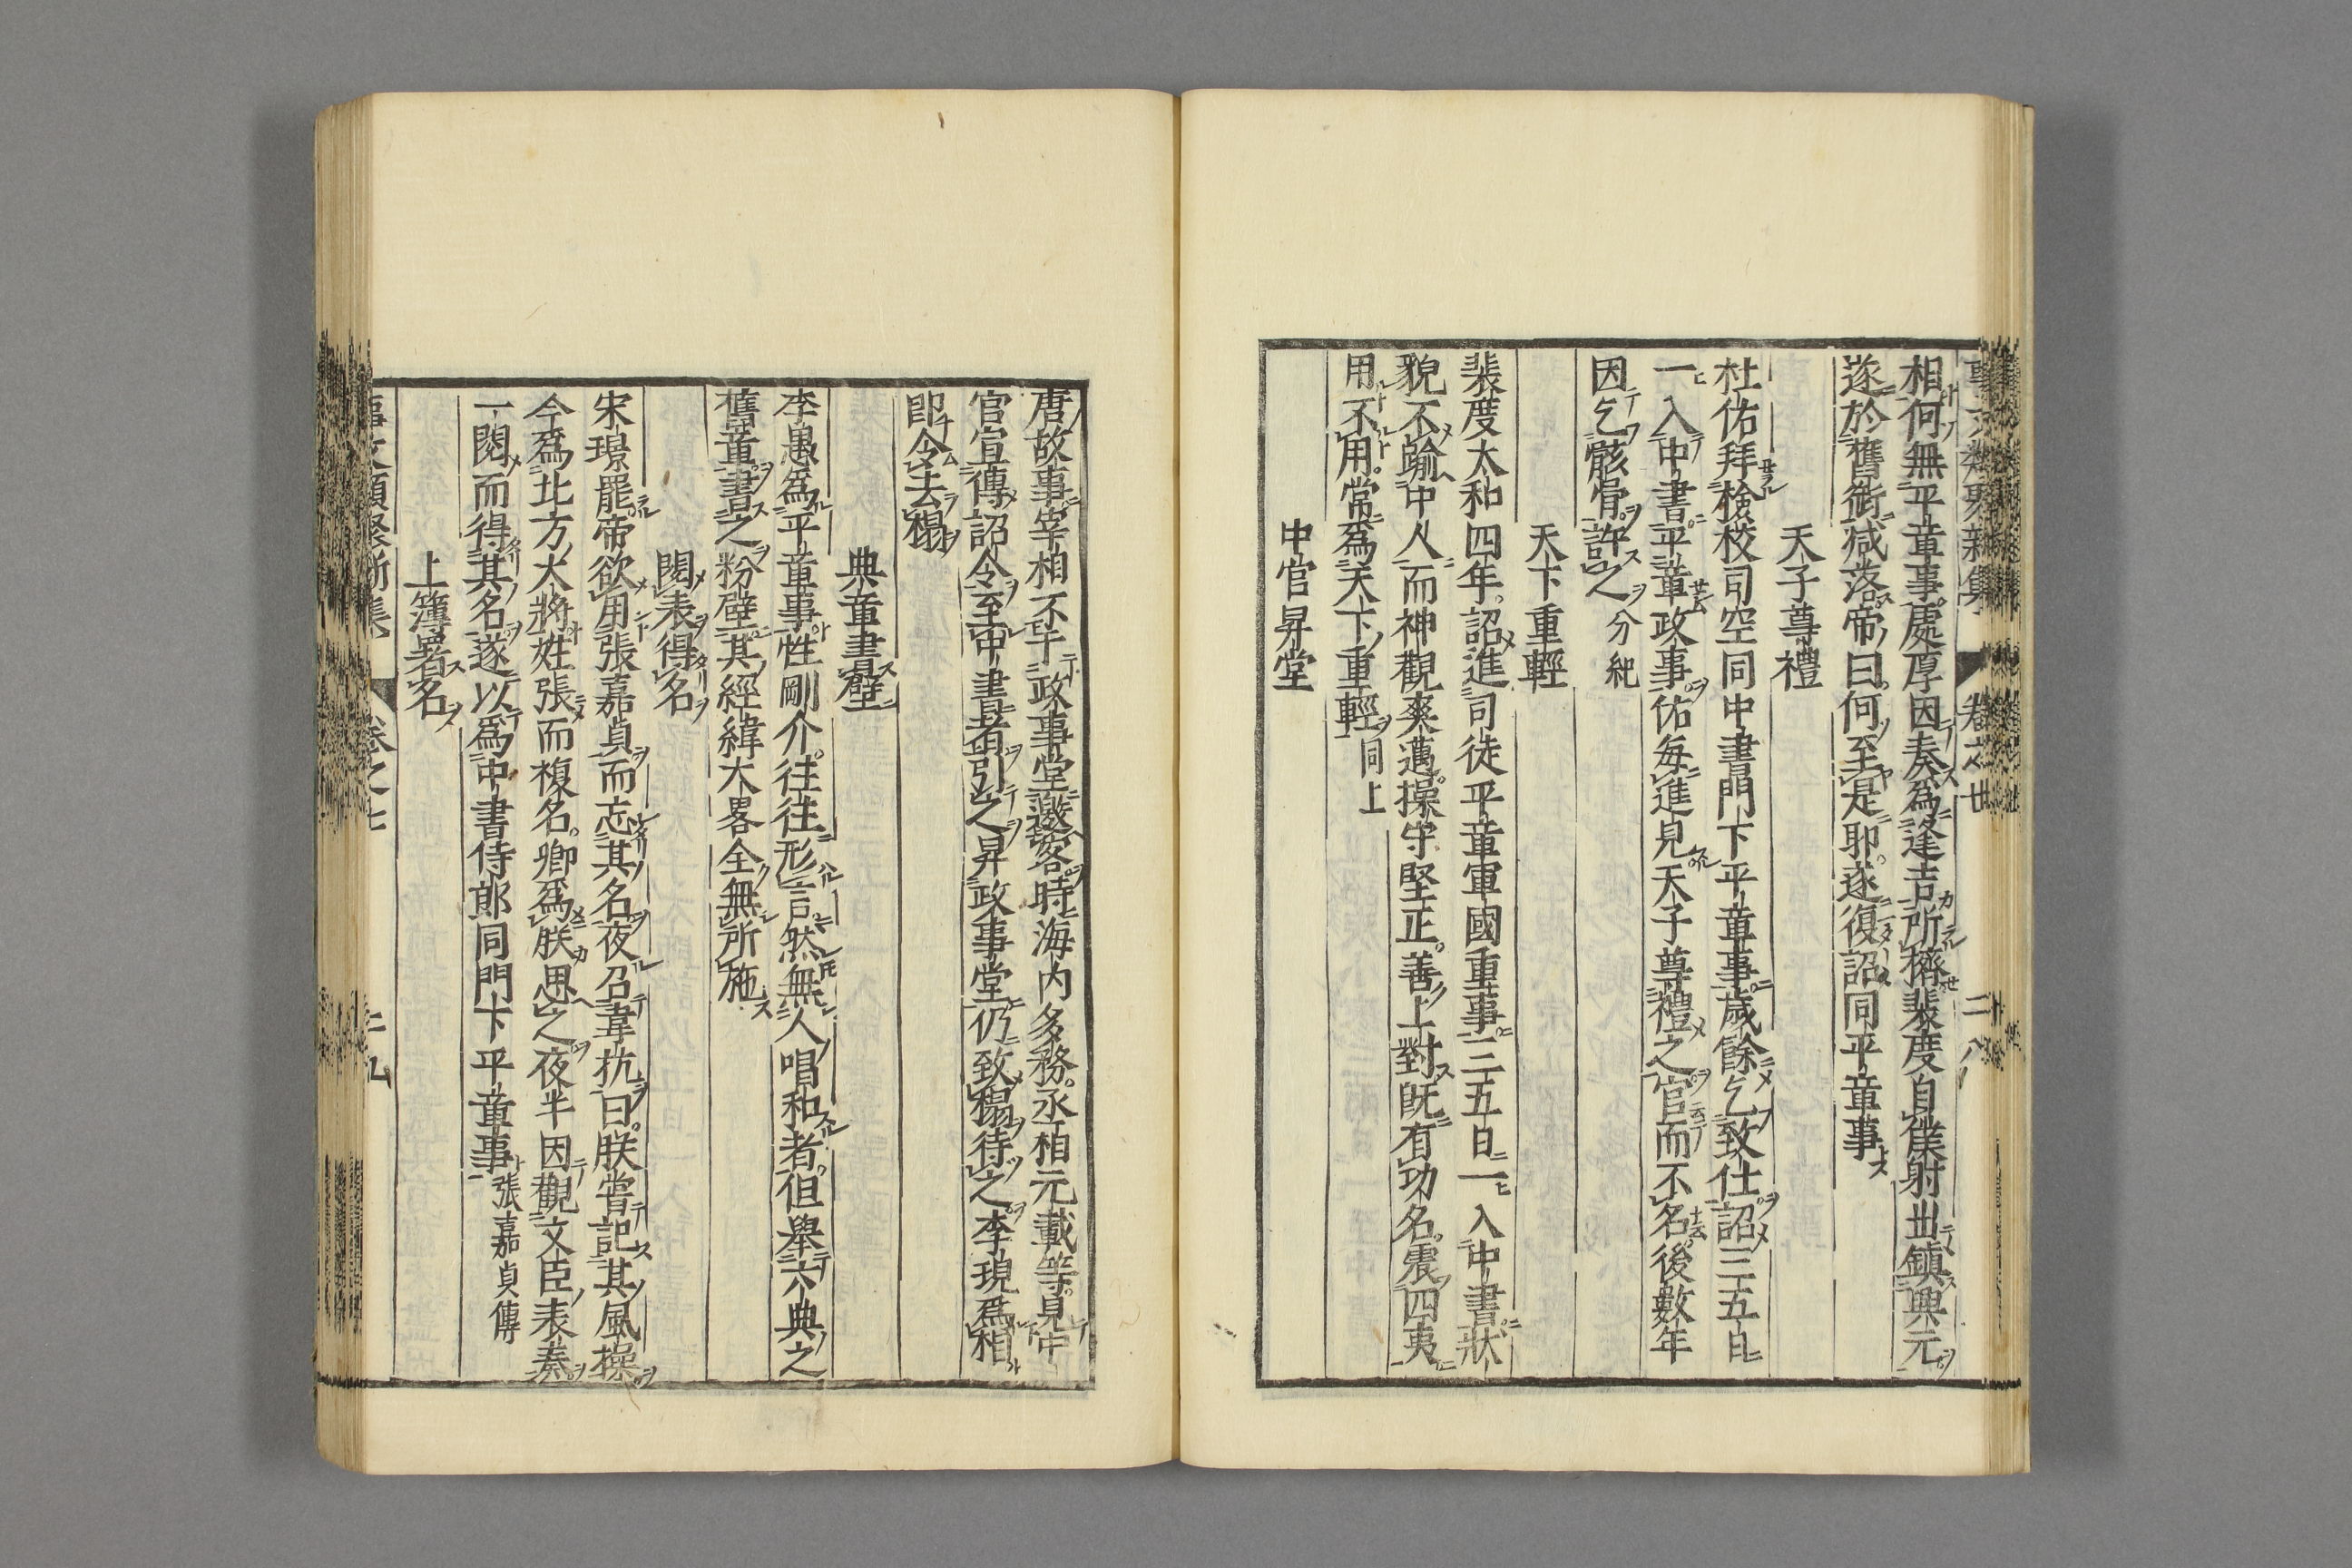 事文類聚新集 卷之七 二八
相何無平章事處厚因奏爲逢吉所擠裴度自僕射出鎮興元
遂於舊銜減落帝曰何至是耶遂復詔同平章事
天子尊禮
杜佑拜檢校司空同中書門下平章事歲餘乞致仕詔三五日
一入中書平章政事佑每進見天子尊禮之官而不名後數年
因乞骸骨許之分紀
天下重輕
裴度太和四年詔進司徒平章軍國重事三五日一入中書狀
貌不踰中人而神觀爽邁操守堅正善上對旣有功名震四夷
用不用常爲天下重輕同上
中官昇堂
唐故事宰相不于政事堂邀客時海内多務丞相元載等見中
官宣傳詔令至中書者引之昇政事堂仍致榻待之李現爲相
即令去榻
典章書壁
李愚爲平章事性剛介往往形言然無人唱和者但舉六典之
舊章書之粉壁其經緯大畧全無所施
閱表得名
宋璟罷帝欲用張嘉貞而忘其名夜召韋抗曰朕嘗記其風操
今爲北方大將姓張而複名卿爲朕思之夜半因觀文臣表奏
一閱而得其名遂以爲中書侍郎同門下平章事張嘉貞傳
上簿署名
事文類聚新集 卷之七 二九